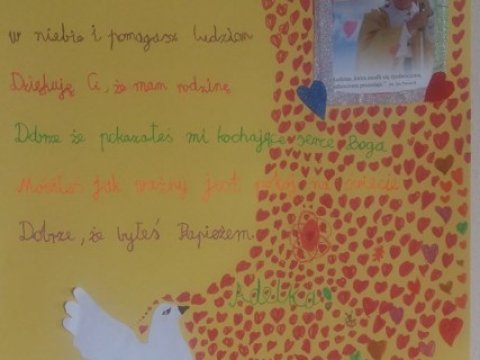 w niebie i pomagasz ludziom
Dziękuję Ci, że mam rodzinę
Dobrze że pokazałeś mi kochające serce Boga
Mówiłeś jak ważny jest pokój na świecie
Dobrze, że byłeś Papieżem.
Adelka